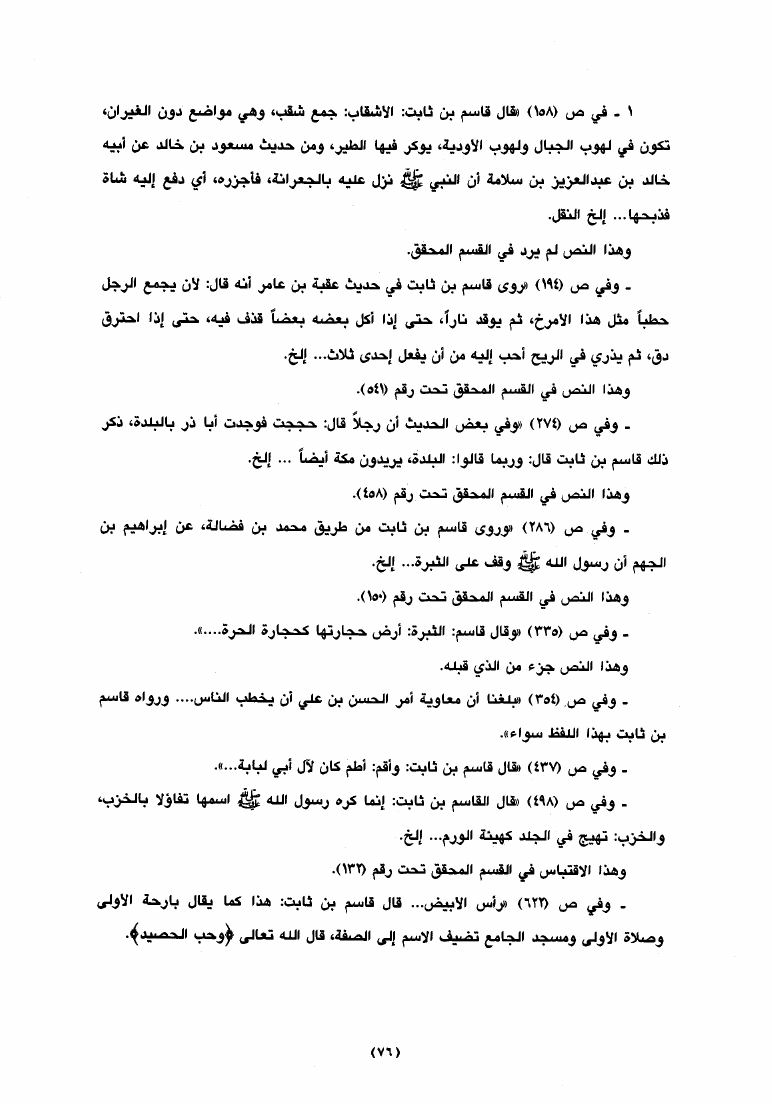 ١ - في ص (١٥٨) «قال قاسم بن ثابت: الأشقاب: جمع شقب، وهي مواضع دون الغيران،
تكون في لهوب الجبال ولهوب الأودية، يوكر فيها الطير، ومن حديث مسعود بن خالد عن أبيه
خالد بن عبدالعزيز بن سلامة أن النبي ﷺ نزل عليه بالجعرانة، فأجزره، أي دفع إليه شاة
فذبحها... إلخ النقل.
وهذا النص لم يرد في القسم المحقق.
- وفي ص (١٩٤) «روى قاسم بن ثابت في حديث عقبة بن عامر أنه قال: لان يجمع الرجل
حطباً مثل هذا الامرخ، ثم يوقد ناراً، حتى إذا أكل بعضه بعضاً قذف فيه، حتى إذا احترق
دق، ثم يذري في الريح أحب إليه من أن يفعل إحدى ثلاث... إلخ.
وهذا النص في القسم المحقق تحت رقم (٥٤١).
- وفي ص (٢٧٤) «وفي بعض الحديث أن رجلاً قال: حججت فوجدت أبا ذر بالبلدة، ذكر
ذلك قاسم بن ثابت قال: وربما قالوا: البلدة، يريدون مكة أيضاً ... إلخ.
وهذا النص في القسم المحقق تحت رقم (٤٥٨).
- وفي ص (٢٨٦) «وروى قاسم بن ثابت من طريق محمد بن فضالة، عن إبراهيم بن
الجهم أن رسول الله ﷺ وقف على الثبرة... إلخ.
وهذا النص في القسم المحقق تحت رقم (١٥٠).
- وفي ص (٣٣٥) «وقال قاسم: الثبرة: أرض حجارتها كحجارة الحرة....».
وهذا النص جزء من الذي قبله.
- وفي ص (٣٥٤) «بلغنا أن معاوية أمر الحسن بن علي أن يخطب الناس.... ورواه قاسم
بن ثابت بهذا اللفظ سواء».
- وفي ص (٤٣٧) «قال قاسم بن ثابت: وأقم: أطم كان لآل أبي لبابة...».
- وفي ص (٤٩٨) «قال القاسم بن ثابت: إنما كره رسول الله ﷺ اسمها تفاؤلا بالخزب،
والخزب: تهيج في الجلد كهيئة الورم... إلخ.
وهذا الاقتباس في القسم المحقق تحت رقم (١٣٢).
- وفي ص (٦٢٢) «رأس الابيض... قال قاسم بن ثابت: هذا كما يقال بارحة الأولى
وصلاة الأولى ومسجد الجامع تضيف الاسم إلى الصفة، قال الله تعالى ﴿وحب الحصيد﴾.
(٧٦)